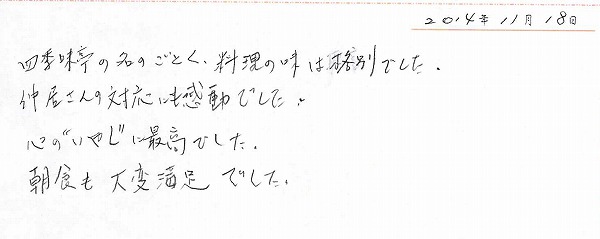 2014年 11月 18日
四季味亭の名のごとく、料理の味は格別でした。
仲居さんの対応にも感動でした。
心の"いやし"に最高でした。
朝食も大変満足でした。